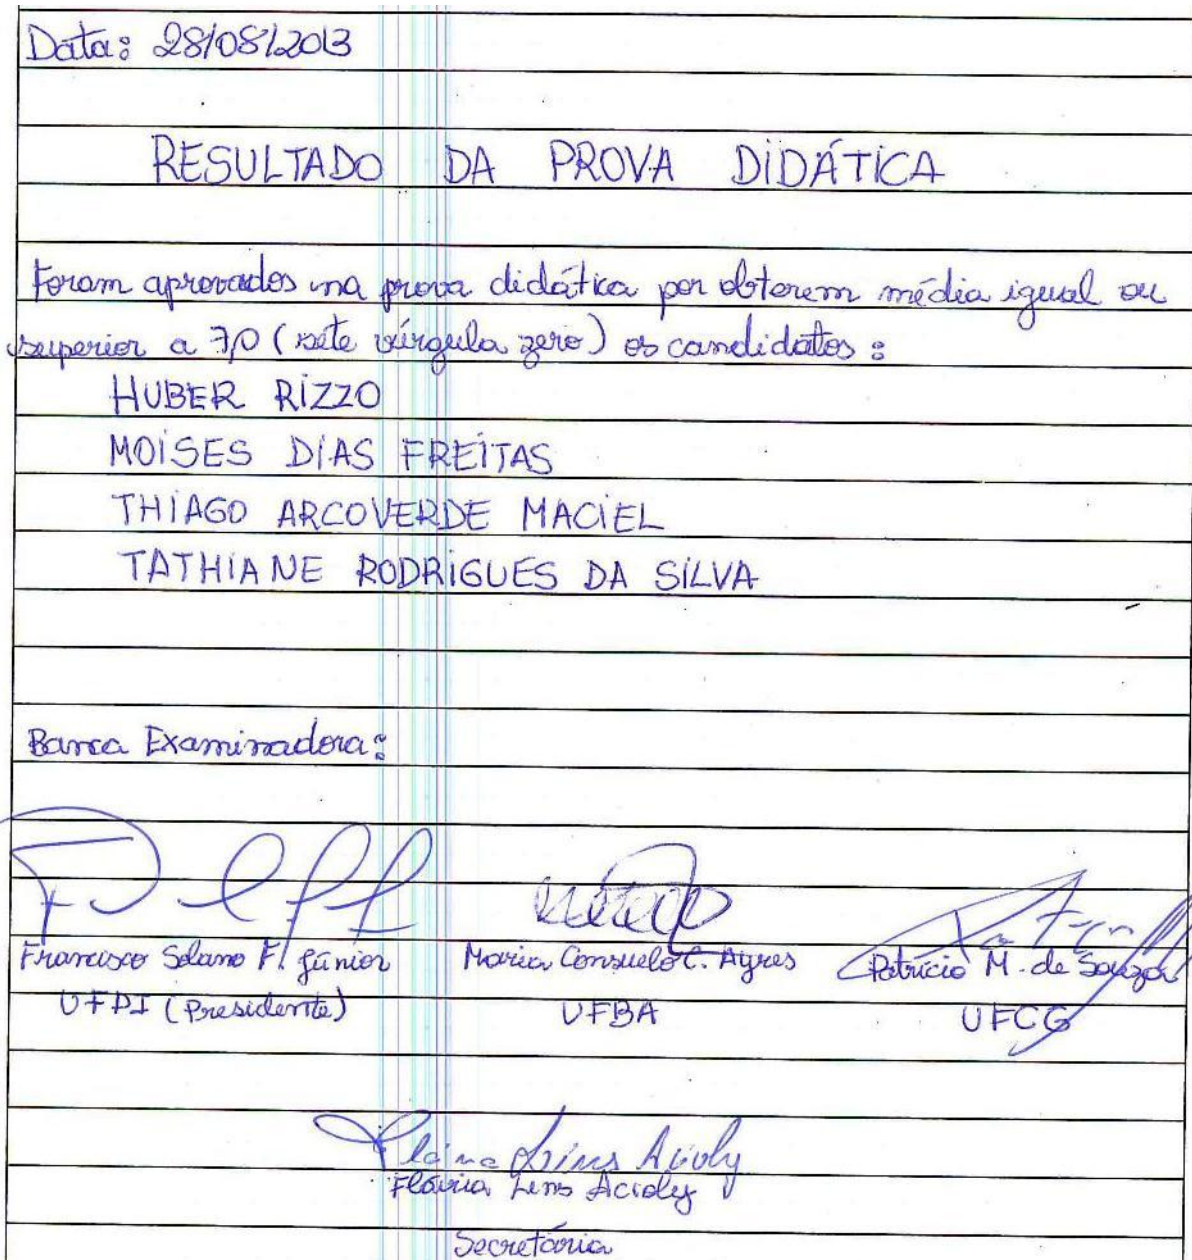 Data: 28/08/2013
RESULTADO DA PROVA DIDÁTICA
Foram aprovados na prova didática por obterem média igual ou
superior a 7,0 (sete vírgula zero) os candidatos:
HUBER RIZZO
MOISES DIAS FREITAS
THIAGO ARCOVERDE MACIEL
TATHIANE RODRIGUES DA SILVA
Banca Examinadora:
Francisco Solano F. Júnior Maria Consuelo C. Ayres Patrício M. de Souza
UFPI (Presidente) UFBA UFCG
Flávia Lins Acioly
Flávia Lins Acioly
Secretária